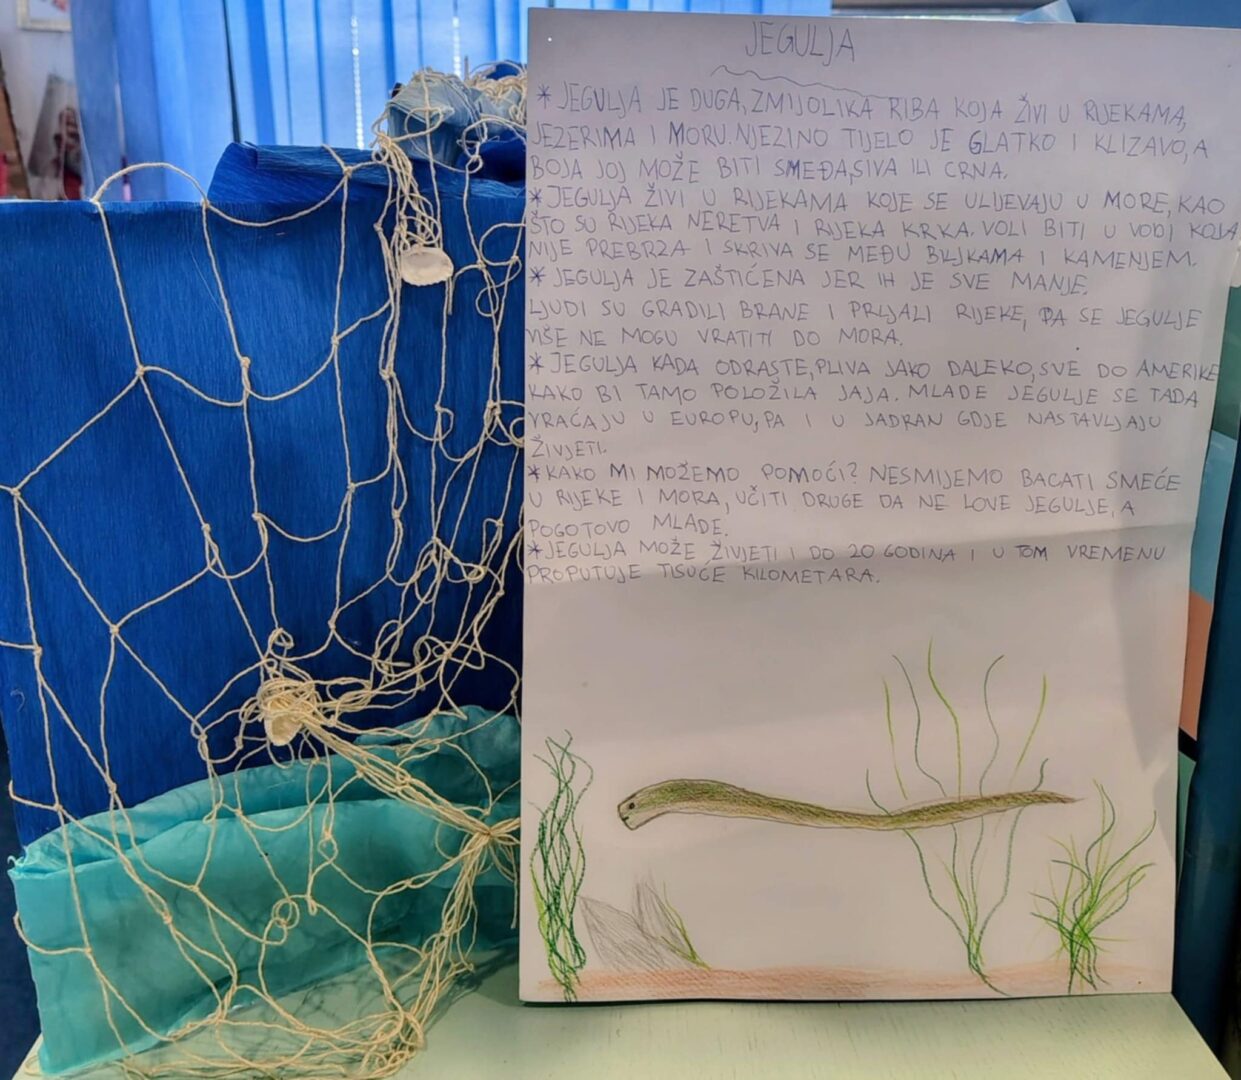 JEGULJA
* JEGULJA JE DUGA, ZMIJOLIKA RIBA KOJA ŽIVI U RIJEKAMA,
JEZERIMA I MORU. NJEZINO TIJELO JE GLATKO I KLIZAVO, A
BOJA JOJ MOŽE BITI SMEĐA, SIVA ILI CRNA.
* JEGULJA ŽIVI U RIJEKAMA KOJE SE ULIJEVAJU U MORE, KAO
ŠTO SU RIJEKA NERETVA I RIJEKA KRKA. VOLI BITI U VODI KOJA
NIJE PREBRZA I SKRIVA SE MEĐU BILJKAMA I KAMENJEM.
* JEGULJA JE ZAŠTIĆENA JER IH JE SVE MANJE.
LJUDI SU GRADILI BRANE I PRLJALI RIJEKE, PA SE JEGULJE
VIŠE NE MOGU VRATITI DO MORA.
* JEGULJA KADA ODRASTE, PLIVA JAKO DALEKO, SVE DO AMERIKE
KAKO BI TAMO POLOŽILA JAJA. MLADE JEGULJE SE TADA
VRAĆAJU U EUROPU, PA I U JADRAN GDJE NASTAVLJAJU
ŽIVJETI.
* KAKO MI MOŽEMO POMOĆI? NESMIJEMO BACATI SMEĆE
U RIJEKE I MORA, UČITI DRUGE DA NE LOVE JEGULJE, A
POGOTOVO MLADE.
* JEGULJA MOŽE ŽIVJETI I DO 20 GODINA I U TOM VREMENU
PROPUTUJE TISUĆE KILOMETARA.